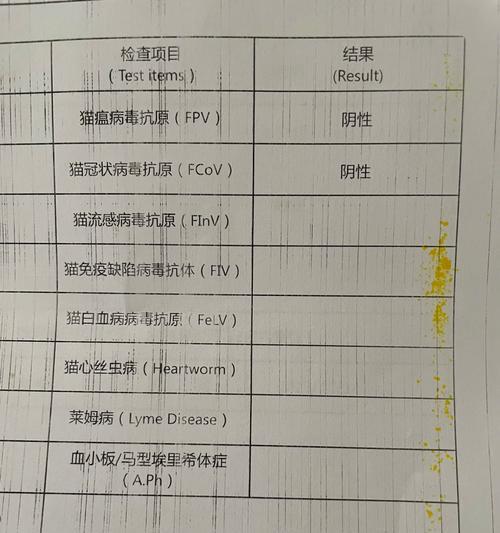 检查项目 结果
(Test items) (Result)
猫瘟病毒抗原(FPV) 阴性
猫冠状病毒抗原(FCoV) 阴性
猫流感病毒抗原(FInV)
猫免疫缺陷病毒抗体(FIV)
猫白血病病毒抗原(FeLV)
猫心丝虫病(Heartworm)
莱姆病(Lyme Disease)
血小板/马型埃里希体症
(A.Ph)